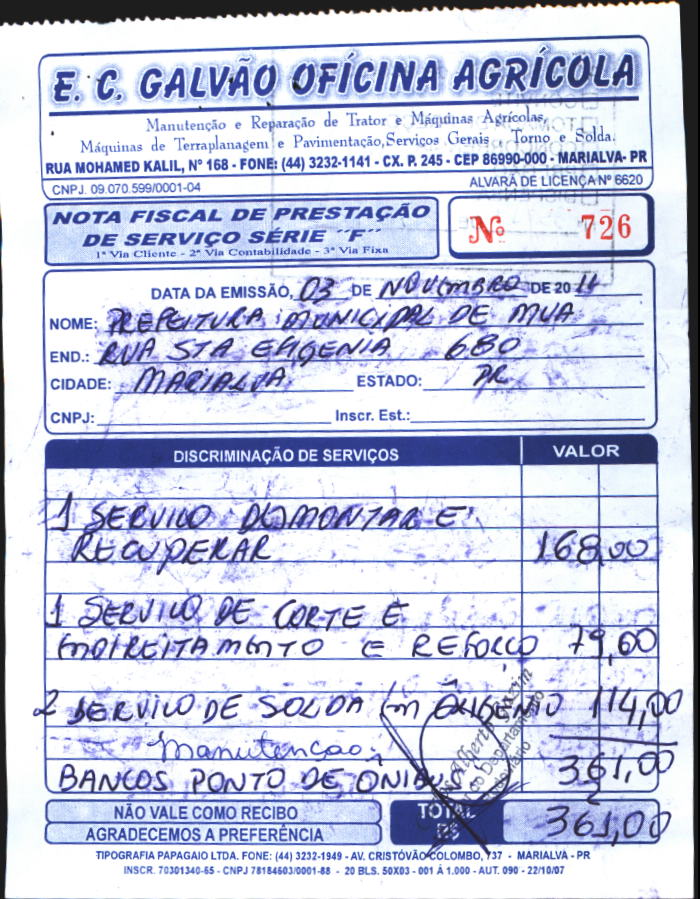 E. C. GALVÃO OFÍCINA AGRÍCOLA
Manutenção e Reparação de Trator e Máquinas Agrícolas,
Máquinas de Terraplanagem e Pavimentação, Serviços Gerais - Torno e Solda.
RUA MOHAMED KALIL, Nº 168 - FONE: (44) 3232-1141 - CX. P. 245 - CEP 86990-000 - MARIALVA- PR
CNPJ. 09.070.599/0001-04 ALVARÁ DE LICENÇA Nº 6620
NOTA FISCAL DE PRESTAÇÃO
DE SERVIÇO SÉRIE "F"
1ª Via Cliente - 2ª Via Contabilidade - 3ª Via Fixa
Nº 726
DATA DA EMISSÃO, 03 DE NOVEMBRO DE 2011
NOME: PREFEITURA MUNICIPAL DE MVA
END.: RUA STA EUGENIA 680
CIDADE: MARIALVA ESTADO: PR
CNPJ: Inscr. Est.:
DISCRIMINAÇÃO DE SERVIÇOS VALOR
1 SERVIÇO DEMONTAR E
RECUPERAR 168,00
1 SERVIÇO DE CORTE E
ENDIREITAMENTO E REFORCO 79,00
2 SERVIÇO DE SOLDA EM OXIGENIO 114,00
Manutencao
BANCOS PONTO DE ÔNIBUS 361,00
NÃO VALE COMO RECIBO
AGRADECEMOS A PREFERÊNCIA
TOTAL R$ 361,00
TIPOGRAFIA PAPAGAIO LTDA. FONE: (44) 3232-1949 - AV. CRISTÓVÃO COLOMBO, 737 - MARIALVA - PR
INSCR. 70301340-65 - CNPJ 78184603/0001-88 - 20 BLS. 50X03 - 001 Á 1.000 - AUT. 090 - 22/10/07